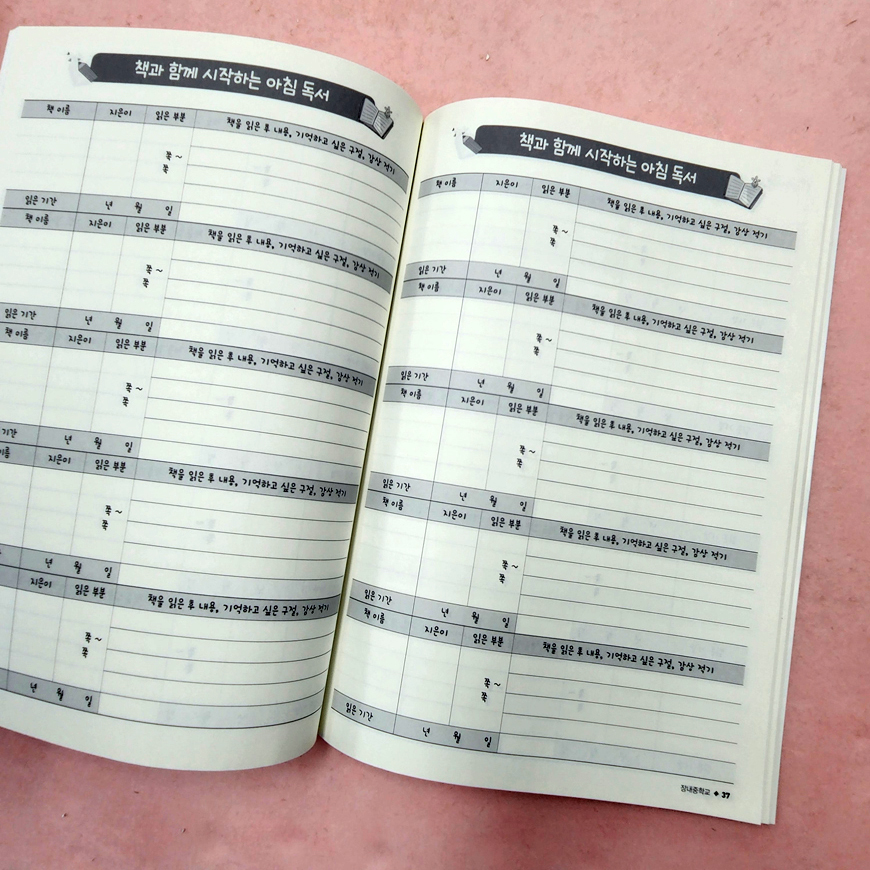 책과 함께 시작하는 아침 독서
책 이름 지은이 읽은 부분 책을 읽은 후 내용, 기억하고 싶은 구절, 감상 적기
쪽 ~
쪽
읽은 기간 년 월 일
책 이름 지은이 읽은 부분 책을 읽은 후 내용, 기억하고 싶은 구절, 감상 적기
쪽 ~
쪽
읽은 기간 년 월 일
책 이름 지은이 읽은 부분 책을 읽은 후 내용, 기억하고 싶은 구절, 감상 적기
쪽 ~
쪽
기간 년 월 일
이름 지은이 읽은 부분 책을 읽은 후 내용, 기억하고 싶은 구절, 감상 적기
쪽 ~
쪽
년 월 일
지은이 읽은 부분 책을 읽은 후 내용, 기억하고 싶은 구절, 감상 적기
쪽 ~
쪽
년 월 일
책과 함께 시작하는 아침 독서
책 이름 지은이 읽은 부분 책을 읽은 후 내용, 기억하고 싶은 구절, 감상 적기
쪽 ~
쪽
읽은 기간 년 월 일
책 이름 지은이 읽은 부분 책을 읽은 후 내용, 기억하고 싶은 구절, 감상 적기
쪽 ~
쪽
읽은 기간 년 월 일
책 이름 지은이 읽은 부분 책을 읽은 후 내용, 기억하고 싶은 구절, 감상 적기
쪽 ~
쪽
읽은 기간 년 월 일
책 이름 지은이 읽은 부분 책을 읽은 후 내용, 기억하고 싶은 구절, 감상 적기
쪽 ~
쪽
읽은 기간 년 월 일
책 이름 지은이 읽은 부분 책을 읽은 후 내용, 기억하고 싶은 구절, 감상 적기
쪽 ~
쪽
읽은 기간 년 월 일
장내중학교 ◆ 37